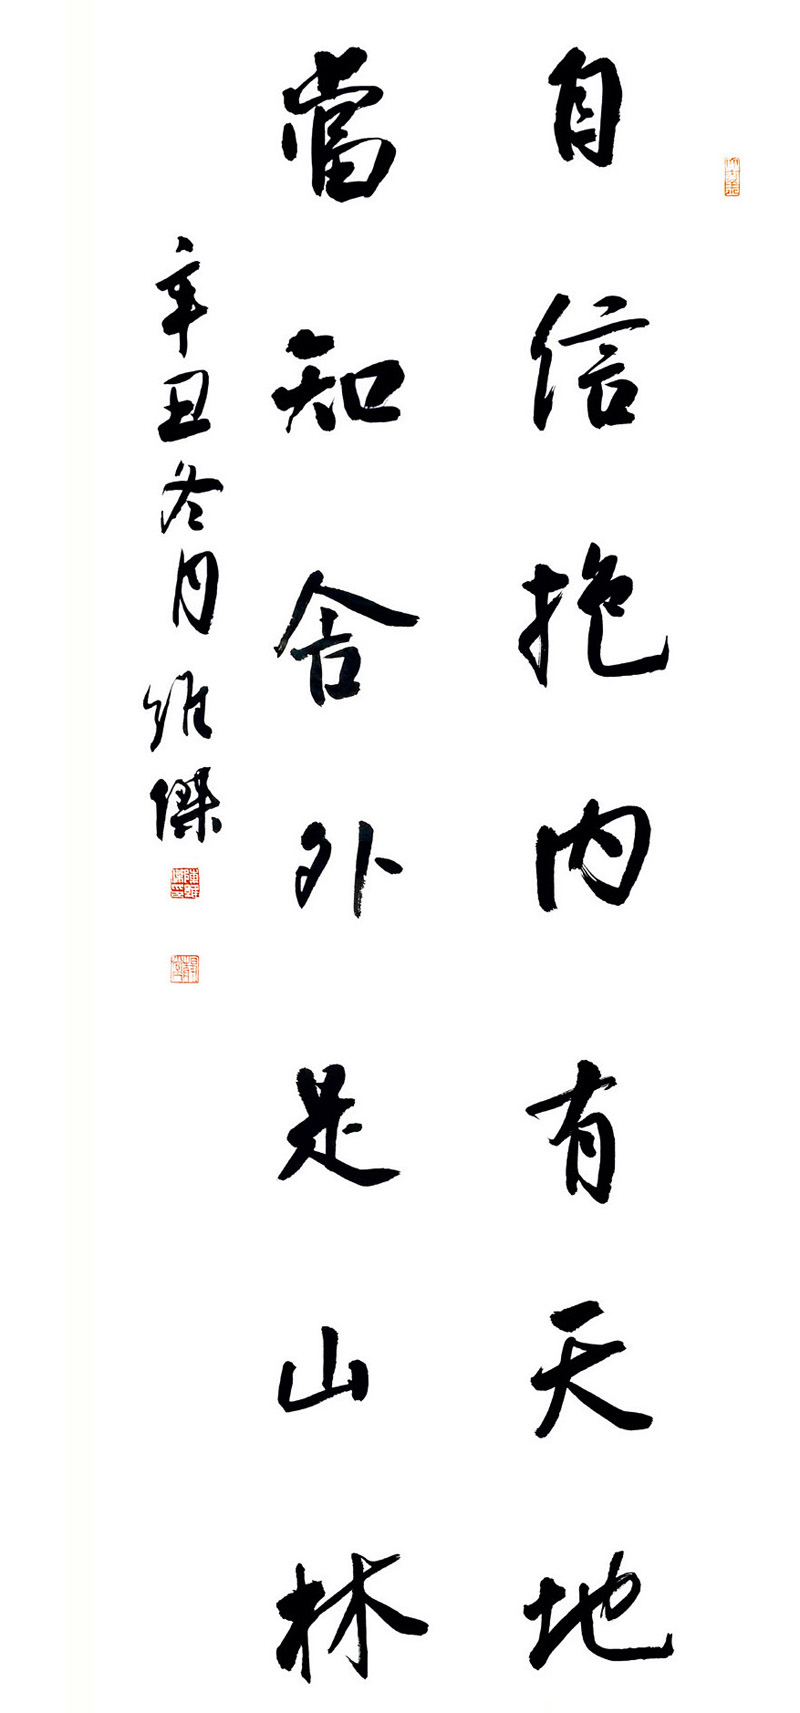 自信抱内有天地
當知舍外是山林
辛丑冬月維傑